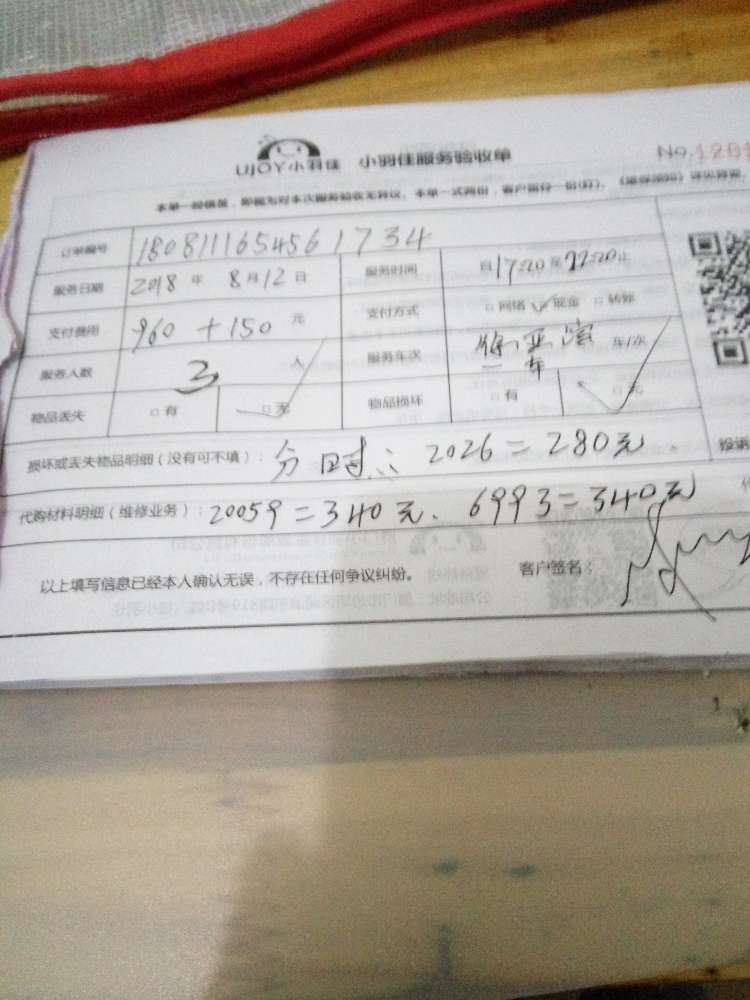 UJOY小羽佳 小羽佳服务验收单 No.1201
本单一经签署,即视为对本次服务验收无异议。本单一式两份,客户留存一份
订单编号 1808111654561734
服务日期 2018年 8月12日 服务时间 自17:20至22:20止
支付费用 960+150元 支付方式 □网络 ☑现金 □转账
服务人数 3人 服务车次 车/次
物品丢失 □有 ☑无 物品损坏 □有 ☑无
损坏或丢失物品明细(没有可不填): 分时:2026=280元. 投诉
代购材料明细(维修业务): 20059=340元、6993=340元
以上填写信息已经本人确认无误,不存在任何争议纠纷。 客户签名: